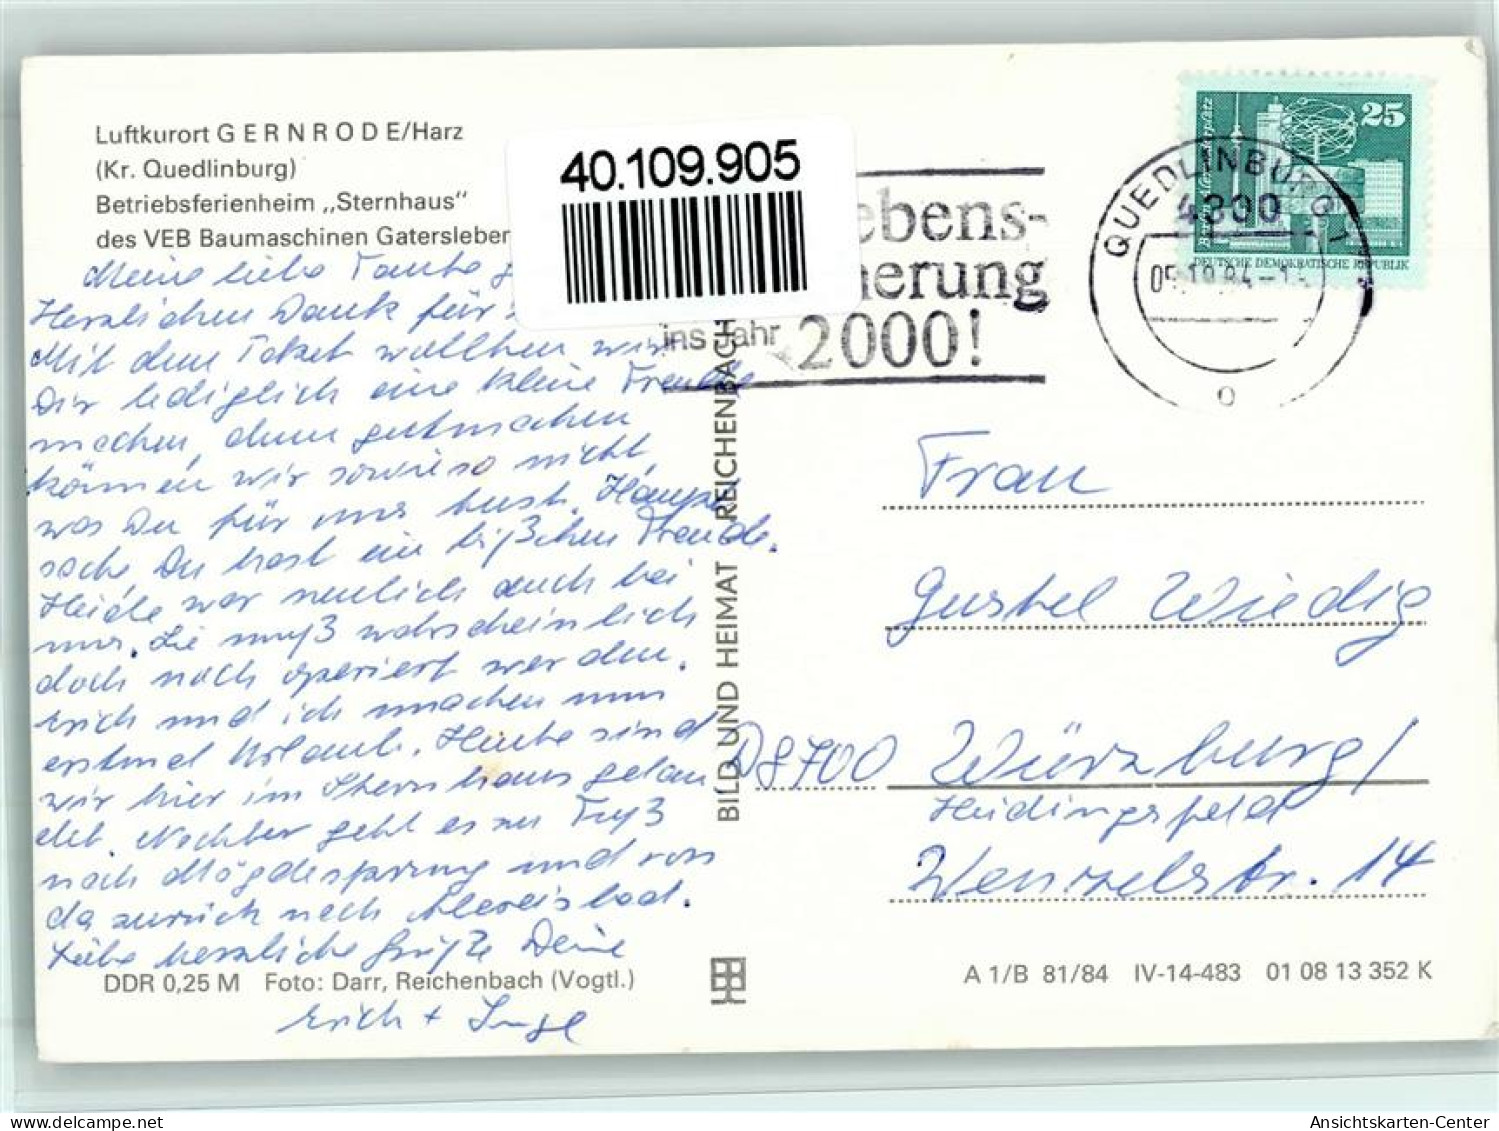 Luftkurort GERNRODE/Harz
(Kr. Quedlinburg)
Betriebsferienheim „Sternhaus“
des VEB Baumaschinen Gatersleber
40.109.905
ebens-
erung
ins Jahr
2000!
QUEDLINBURG 1
4300
25
DEUTSCHE DEMOKRATISCHE REPUBLIK
Meine liebe Tante
Herzlichen Dank für
Mit dem Paket wollten wir
Dir lediglich eine kleine Freude
machen, denn gutmachen
können wir sowieso nicht,
was Du für uns tust. Haupt
sache, Du hast ein bißchen Freude.
Heide war neulich auch bei
uns. Sie muß wahrscheinlich
doch noch operiert werden.
Erich und ich machen nun
erstmal Urlaub. Heute sind
wir hier im Sternhaus gelan
det. Nachher geht es zu Fuß
nach Mägdesprung und von
da zurück nach Alexisbad.
Liebe herzliche Grüße Deine
Erich + Inge
BILD UND HEIMAT REICHENBACH
Frau
Gustel Wiedig
D8700 Würzburg/
Heidingsfeld
Wenzelstr. 14
DDR 0,25 M Foto: Darr, Reichenbach (Vogtl.)
A 1/B 81/84 IV-14-483 01 08 13 352 K
delcampe.net
Ansichtskarten-Center